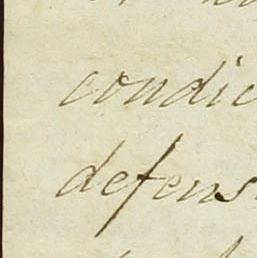 condic
defens